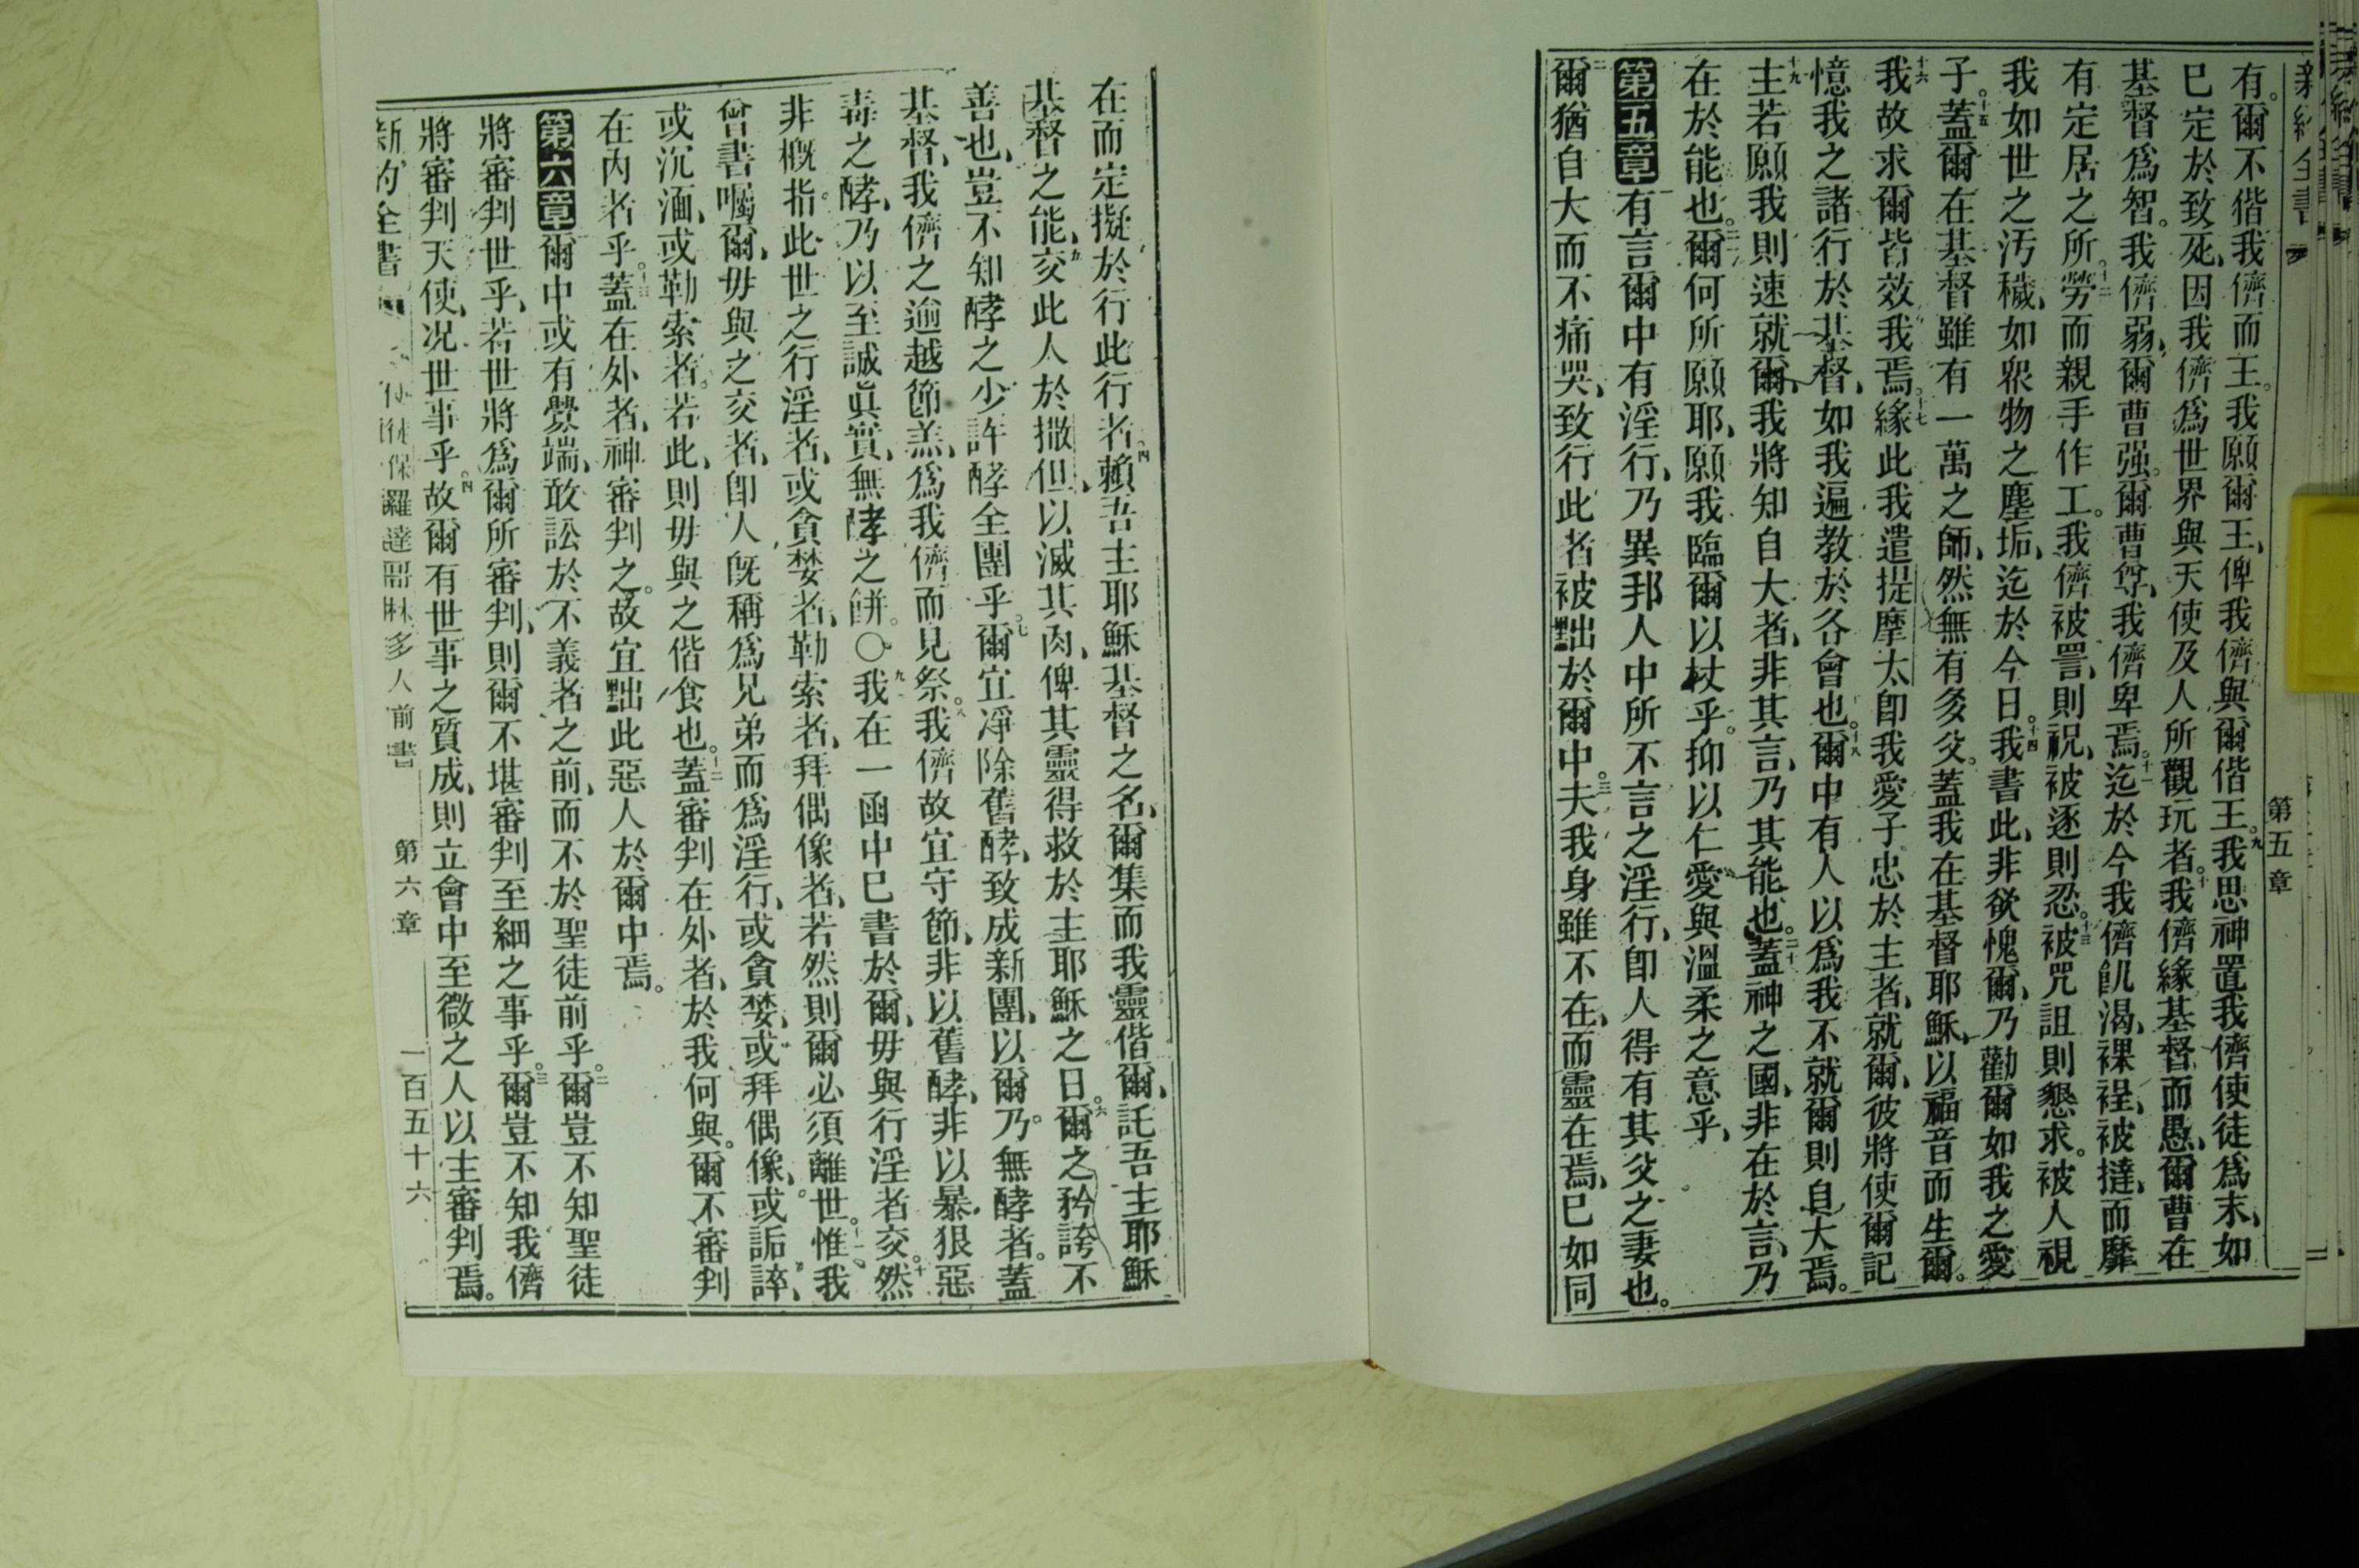 第五章
有。爾不偕我儕而王。我願爾王、俾我儕與爾偕王。九我思神置我儕使徒爲末、如
已定於致死、因我儕爲世界與天使及人所觀玩者。十我儕緣基督而愚、爾曹在
基督爲智。我儕弱、爾曹强。爾曹尊、我儕卑焉。十一迄於今我儕飢渴、裸裎、被撻、而靡
有定居之所。十二勞而親手作工。我儕被詈、則祝、被逐則忍。十三被咒詛則懇求。被人視
我如世之汚穢、如衆物之塵垢、迄於今日。十四我書此、非欲愧爾、乃勸爾如我之愛
子。十五蓋爾在基督雖有一萬之師、然無有多父。蓋我在基督耶穌、以福音而生爾。
十六我故求爾皆效我焉。十七緣此我遣提摩太卽我愛子忠於主者、就爾、彼將使爾記
憶我之諸行於基督、如我遍教於各會也。十八爾中有人以爲我不就爾則自大焉。
十九主若願我則速就爾、我將知自大者、非其言、乃其能也。二十蓋神之國、非在於言、乃
在於能也。爾何所願耶、願我臨爾以杖乎。抑以仁愛與溫柔之意乎、
第五章有言爾中有淫行、乃異邦人中所不言之淫行、卽人得有其父之妻也。
二爾猶自大而不痛哭、致行此者被黜於爾中。三夫我身雖不在、而靈在焉、已如同
在而定擬於行此行者。四賴吾主耶穌基督之名、爾集而我靈偕爾、託吾主耶穌
基督之能、五交此人於撒但、以滅其肉、俾其靈得救於主耶穌之日。六爾之矜誇不
善也、豈不知酵之少許酵全團乎。七爾宜凈除舊酵、致成新團、以爾乃無酵者。蓋
基督、我儕之逾越節羔、爲我儕而見祭。八我儕故宜守節、非以舊酵、非以暴狠惡
毒之酵、乃以至誠眞實、無酵之餅。〇九我在一函中已書於爾、毋與行淫者交。十然
非槪指此世之行淫者、或貪婪者、勒索者、拜偶像者、若然則爾必須離世。十一惟我
曾書囑爾、毋與之交者、卽人旣稱爲兄弟而爲淫行、或貪婪、或拜偶像、或詬誶、
或沉湎、或勒索者。若此、則毋與之偕食也。十二蓋審判在外者、於我何與。爾不審判
在內者乎。十三蓋在外者、神審判之。故宜黜此惡人於爾中焉。
第六章爾中或有釁端、敢訟於不義者之前、而不於聖徒前乎。二爾豈不知聖徒
將審判世乎、若世將爲爾所審判、則爾不堪審判至細之事乎。三爾豈不知我儕
將審判天使、况世事乎。四故爾有世事之質成、則立會中至微之人以主審判焉。
新約全書 使徒保羅達哥林多人前書 第六章 一百五十六